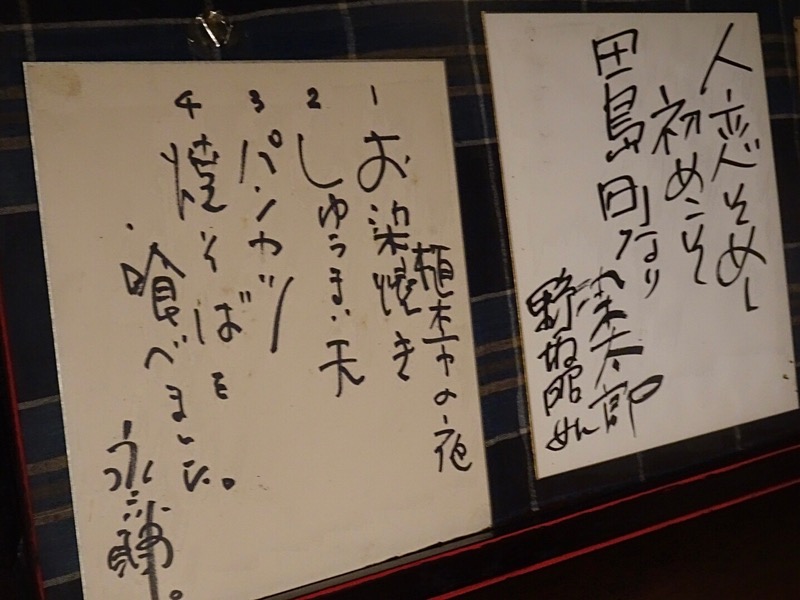 人恋そめし
初めこそ
田島町なり
染太郎
野坂昭如
植木市の夜
1 お染焼き
2 しゅうまい天
3 パンカツ
4 焼そばを
喰べました。
永六輔。